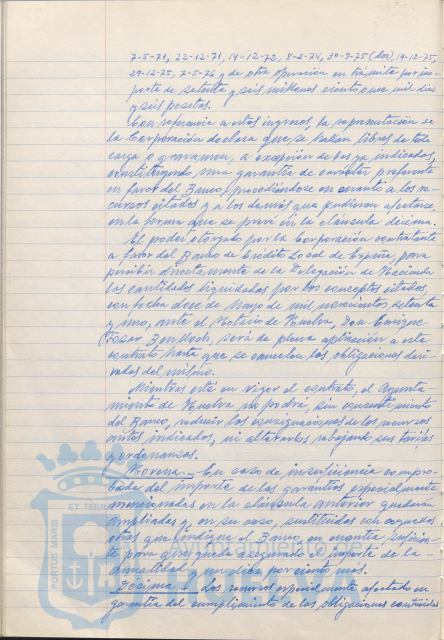 7-5-71, 22-12-71, 14-12-72, 8-2-74, 30-9-75 (dos), 19-12-75,
29-12-75, 7-5-76 y de otra operación en trámite por im-
porte de setenta y seis millones ciento once mil diez
y seis pesetas.
Con referencia a estos ingresos, la representación de
la Corporación declara que se hallan libres de toda
carga o gravamen, a excepción de los ya indicados,
constituyendo una garantía de carácter preferente
en favor del Banco, procediéndose en cuanto a los re-
cursos citados y a los demás que pudieran afectarse
en la forma que se prevé en la cláusula décima.
El poder otorgado por la Corporación contratante
a favor del Banco de Crédito Local de España, para
percibir directamente de la Delegación de Hacienda
las cantidades liquidadas por los conceptos citados,
con fecha doce de Mayo de mil novecientos setenta
y uno, ante el Notario de Huelva, Don Enrique
Benlloch, será de plena aplicación a este
contrato hasta que se cancelen las obligaciones deri-
vadas del mismo.
Mientras esté en vigor el contrato, el Ayunta-
miento de Huelva no podrá, sin consentimiento
del Banco, reducir las consignaciones de los recursos
antes indicados, ni alterarlos rebajando sus tarifas
y ordenanzas.
Novena.- En caso de insuficiencia compro-
bada del importe de las garantías especialmente
mencionadas en la cláusula anterior quedarán
ampliadas y, en su caso, sustituidas con aquellas
otras que indique el Banco, en cuantía suficien-
te para que quede asegurado el importe de la
anualidad y un diez por ciento más.
Décima.- Los recursos especialmente afectados en
garantía del cumplimiento de las obligaciones contraídas
PORTUS MARIS ET TERRAE
HUELVA